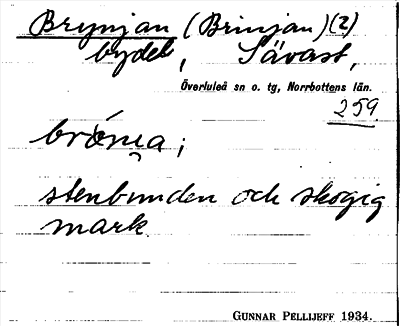 Brynjan (Brinjan) (2)
bydel, Sävast,
Överluleå sn o. tg, Norrbottens län.
259.
stenbunden och skogig
mark.
GUNNAR PELLIJEFF 1934.